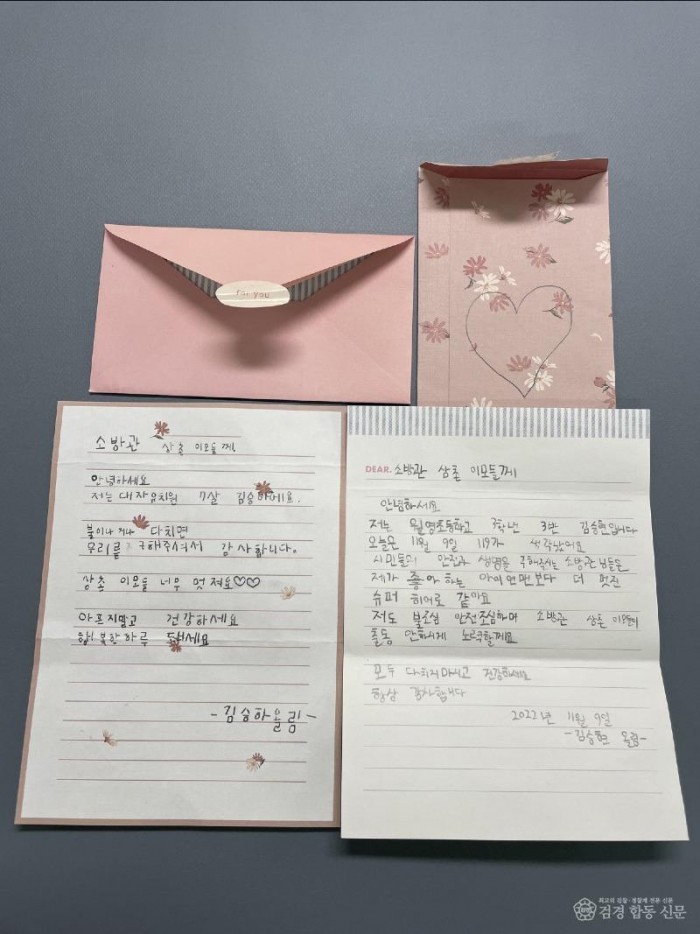 for you
소방관 삼촌 이모들께
안녕하세요
저는 대자유치원 7살 김승하에요.
불이나거나 다치면
우리를 구해주셔서 감사합니다.
삼촌 이모들 너무 멋져요♡♡
아프지말고 건강하세요
행복한하루 돼세요
-김승하올림-
DEAR. 소방관 삼촌 이모들께
안녕하세요
저는 월영초등학교 3학년 3반 김승현입니다
오늘은 11월 9일 119가 생각났어요
시민들의 안전과 생명을 구해주시는 소방관님들은
제가 좋아하는 아이언맨보다 더 멋진
슈퍼 히어로 같아요
저도 불조심 안전조심하며 소방관 삼촌 이모들이
출동 안하시게 노력할께요
모두 다치지마시고 건강하세요
항상 감사합니다
2022년 11월 9일
-김승현 올림-
최고의 검찰·경찰에 전문 신문
검경 합동 신문